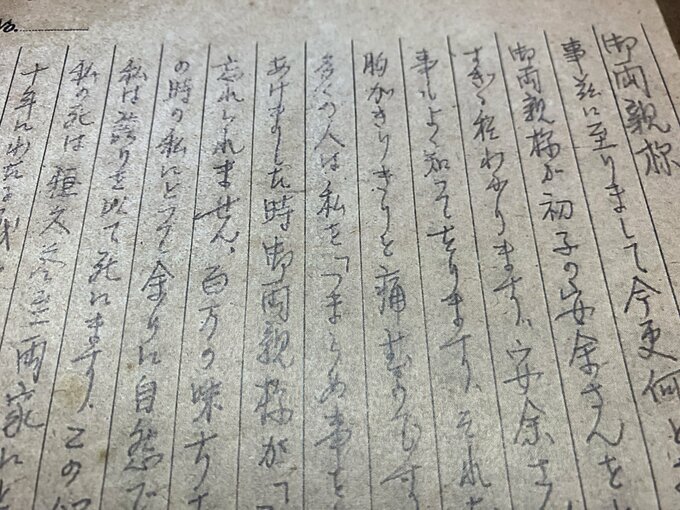 御両親様
事茲に至りまして今更何と
御両親様が初子の安余さんを
すぎる程わかります。安余さ
事もよく知つてをります。それを
胸がきりきりと痛むのです
多くの人は私を「つまらぬ事を
あげました時御両親様が、「
忘れられません。百万の味方を
の時の私にとつて余りに自然で
私は誇りを以て死にます。この
私の死は 両家に
十年にわたる